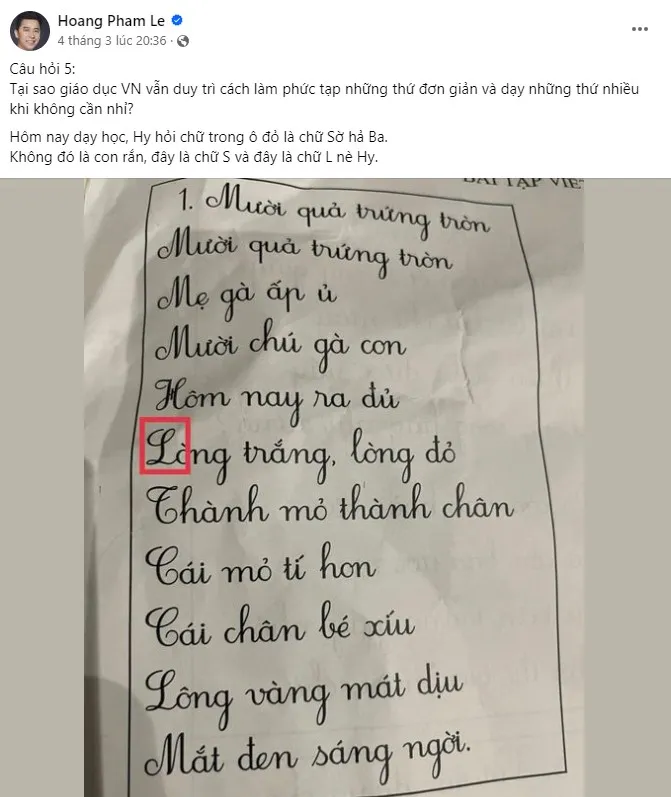 Hoang Pham Le
4 tháng 3 lúc 20:36 ·
Câu hỏi 5:
Tại sao giáo dục VN vẫn duy trì cách làm phức tạp những thứ đơn giản và dạy những thứ nhiều
khi không cần nhỉ?
Hôm nay dạy học, Hy hỏi chữ trong ô đỏ là chữ Sờ hả Ba.
Không đó là con rắn, đây là chữ S và đây là chữ L nè Hy.
BÀI TẬP VIẾ
1. Mười quả trứng tròn
Mười quả trứng tròn
Mẹ gà ấp ủ
Mười chú gà con
Hôm nay ra đủ
Lòng trắng, lòng đỏ
Thành mỏ thành chân
Cái mỏ tí hon
Cái chân bé xíu
Lông vàng mát dịu
Mắt đen sáng ngời.